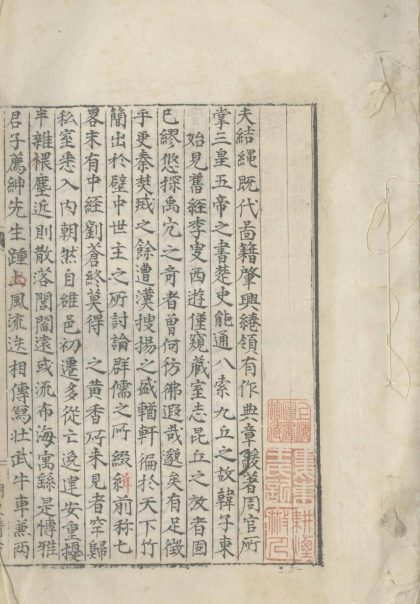 夫結繩既代啚籍肇興綣領有作典章叢著周官所
掌三皇五帝之書楚史能通八索九丘之故韓子東
始見舊經李叟西遊僅窺藏室志昆丘之放者固
已繆悠探禹穴之奇者曾何彷彿遐哉邈矣有足徵
乎更秦焚烕之餘遭漢搜揚之盛輶軒徧於天下竹
簡出於壁中世主之所討論群儒之所綴緝前稱七
畧末有中經劉蒼終莫得之黄香所未見者罕歸
私室悉入内朝然自雒邑初遷多從亡逸建安重擾
半雜煨塵近則散落閭閻遠或流布海寓繇是博雅
君子薦紳先生踵上風流迭相傳寫壯武牛車兼兩